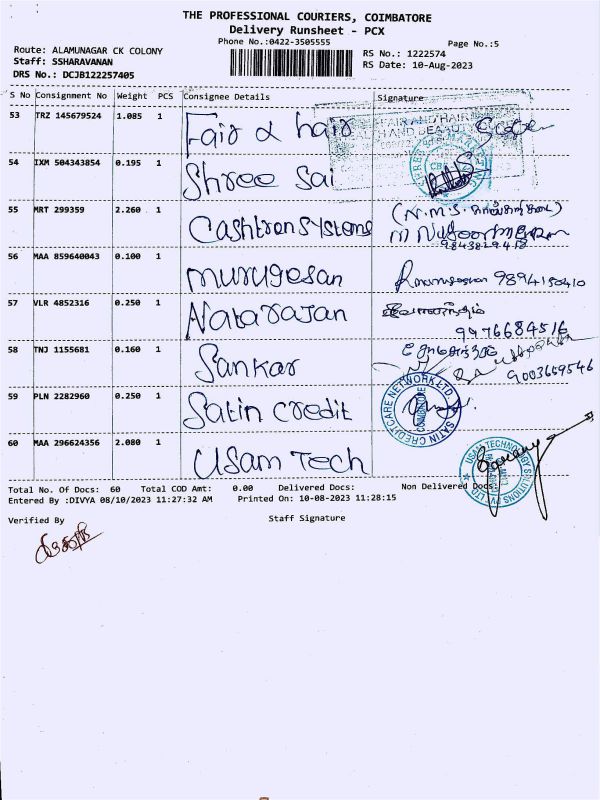 THE PROFESSIONAL COURIERS, COIMBATORE
Delivery Runsheet - PCX
Phone No.:0422-3505555
Page No.:5
Route: ALAMUNAGAR CK COLONY
RS No.: 1222574
Staff: SSHARAVANAN
RS Date: 10-Aug-2023
DRS No.: DCJB122257405
S No Consignment No Weight PCS Consignee Details Signature
53 TRZ 145679524 1.085 1 Fair & hair
54 IXM 504343854 0.195 1 Shree Sai
55 MRT 299359 2.260 1 Cashtron Systems (N.M.S.
9843829418
56 MAA 859640043 0.100 1 murugesan 9894150410
57 VLR 4852316 0.250 1 Natarajan
9976684516
58 TNJ 1155681 0.160 1 Sankar
9003669546
59 PLN 2282960 0.250 1 Satin credit SATIN CREDITCARE NETWORK LTD. COIMBATORE
60 MAA 296624356 2.080 1 Usam Tech USAM TECHNOLOGY SOLUTIONS PVT LTD
Total No. Of Docs: 60 Total COD Amt: 0.00 Delivered Docs: Non Delivered Docs:
Entered By :DIVYA 08/10/2023 11:27:32 AM Printed On: 10-08-2023 11:28:15
Verified By Staff Signature